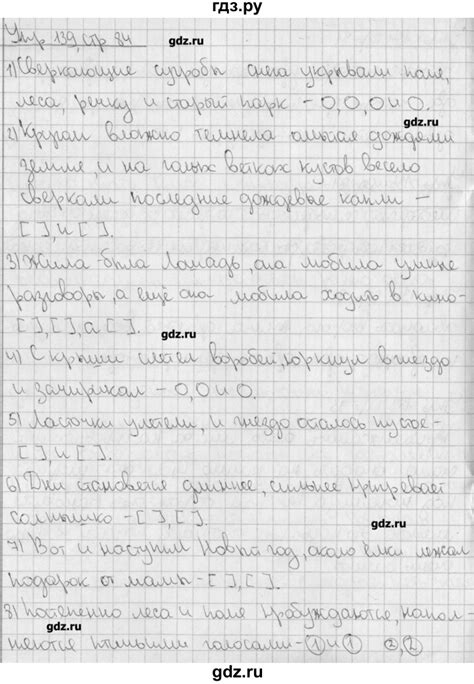 гдз.ру
Упр 139, стр 84
gdz.ru
1) Сверкающие сугробы снега укрывали поле,
gdz.ru
леса, речку и старый парк - О, О, О и О.
gdz.ru
2) Кругом влажно темнела омытая дождями
земля, и на голых ветках кустов весело
сверкали последние дождевые капли -
[ ], и [ ].
gdz.ru
3) Жила-была Лошадь, она любила умные
разговоры, а ещё она любила ходить в кино-
[ ], [ ], а [ ].
gdz.ru
4) С крыши слетел воробей, юркнул в гнездо
и зачирикал - О, О и О.
gdz.ru
5) Ласточки улетели, и гнездо осталось пустое-
[ ], и [ ].
gdz.ru
6) Дни становятся длиннее, сильнее пригревает
солнышко - [ ], [ ].
gdz.ru
7) Вот и наступил Новый год, около ёлки лежал
подарок от мамы - [ ], [ ].
gdz.ru
8) Постепенно леса и поля пробуждаются, напол-
gdz.ru
няются птичьими голосами - ① и ① ②, ②
gdz.ru